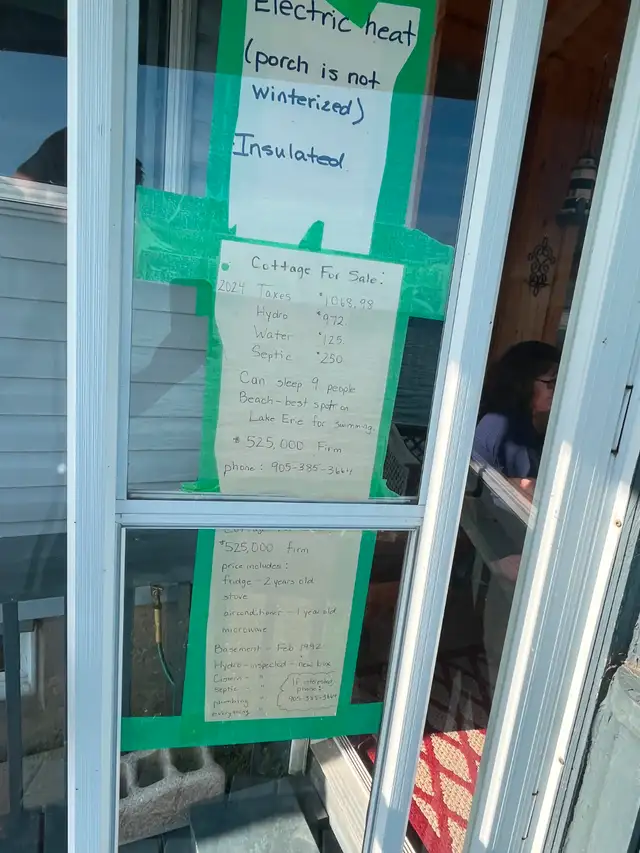 Electric heat
(porch is not
winterized)
Insulated
Cottage For Sale:
2024 Taxes $1068.98
Hydro $972
Water $125
Septic $250
Can sleep 9 people
Beach - best spot on
Lake Erie for swimming.
$525,000 Firm
phone: 905-385-3664
$525,000 firm
price includes:
fridge - 2 years old
stove
airconditioner - 1 year old
microwave
Basement - Feb 1992
Hydro - inspected - new box
Cistern "
septic "
plumbing "
everything "
If interested
phone:
905-385-3664